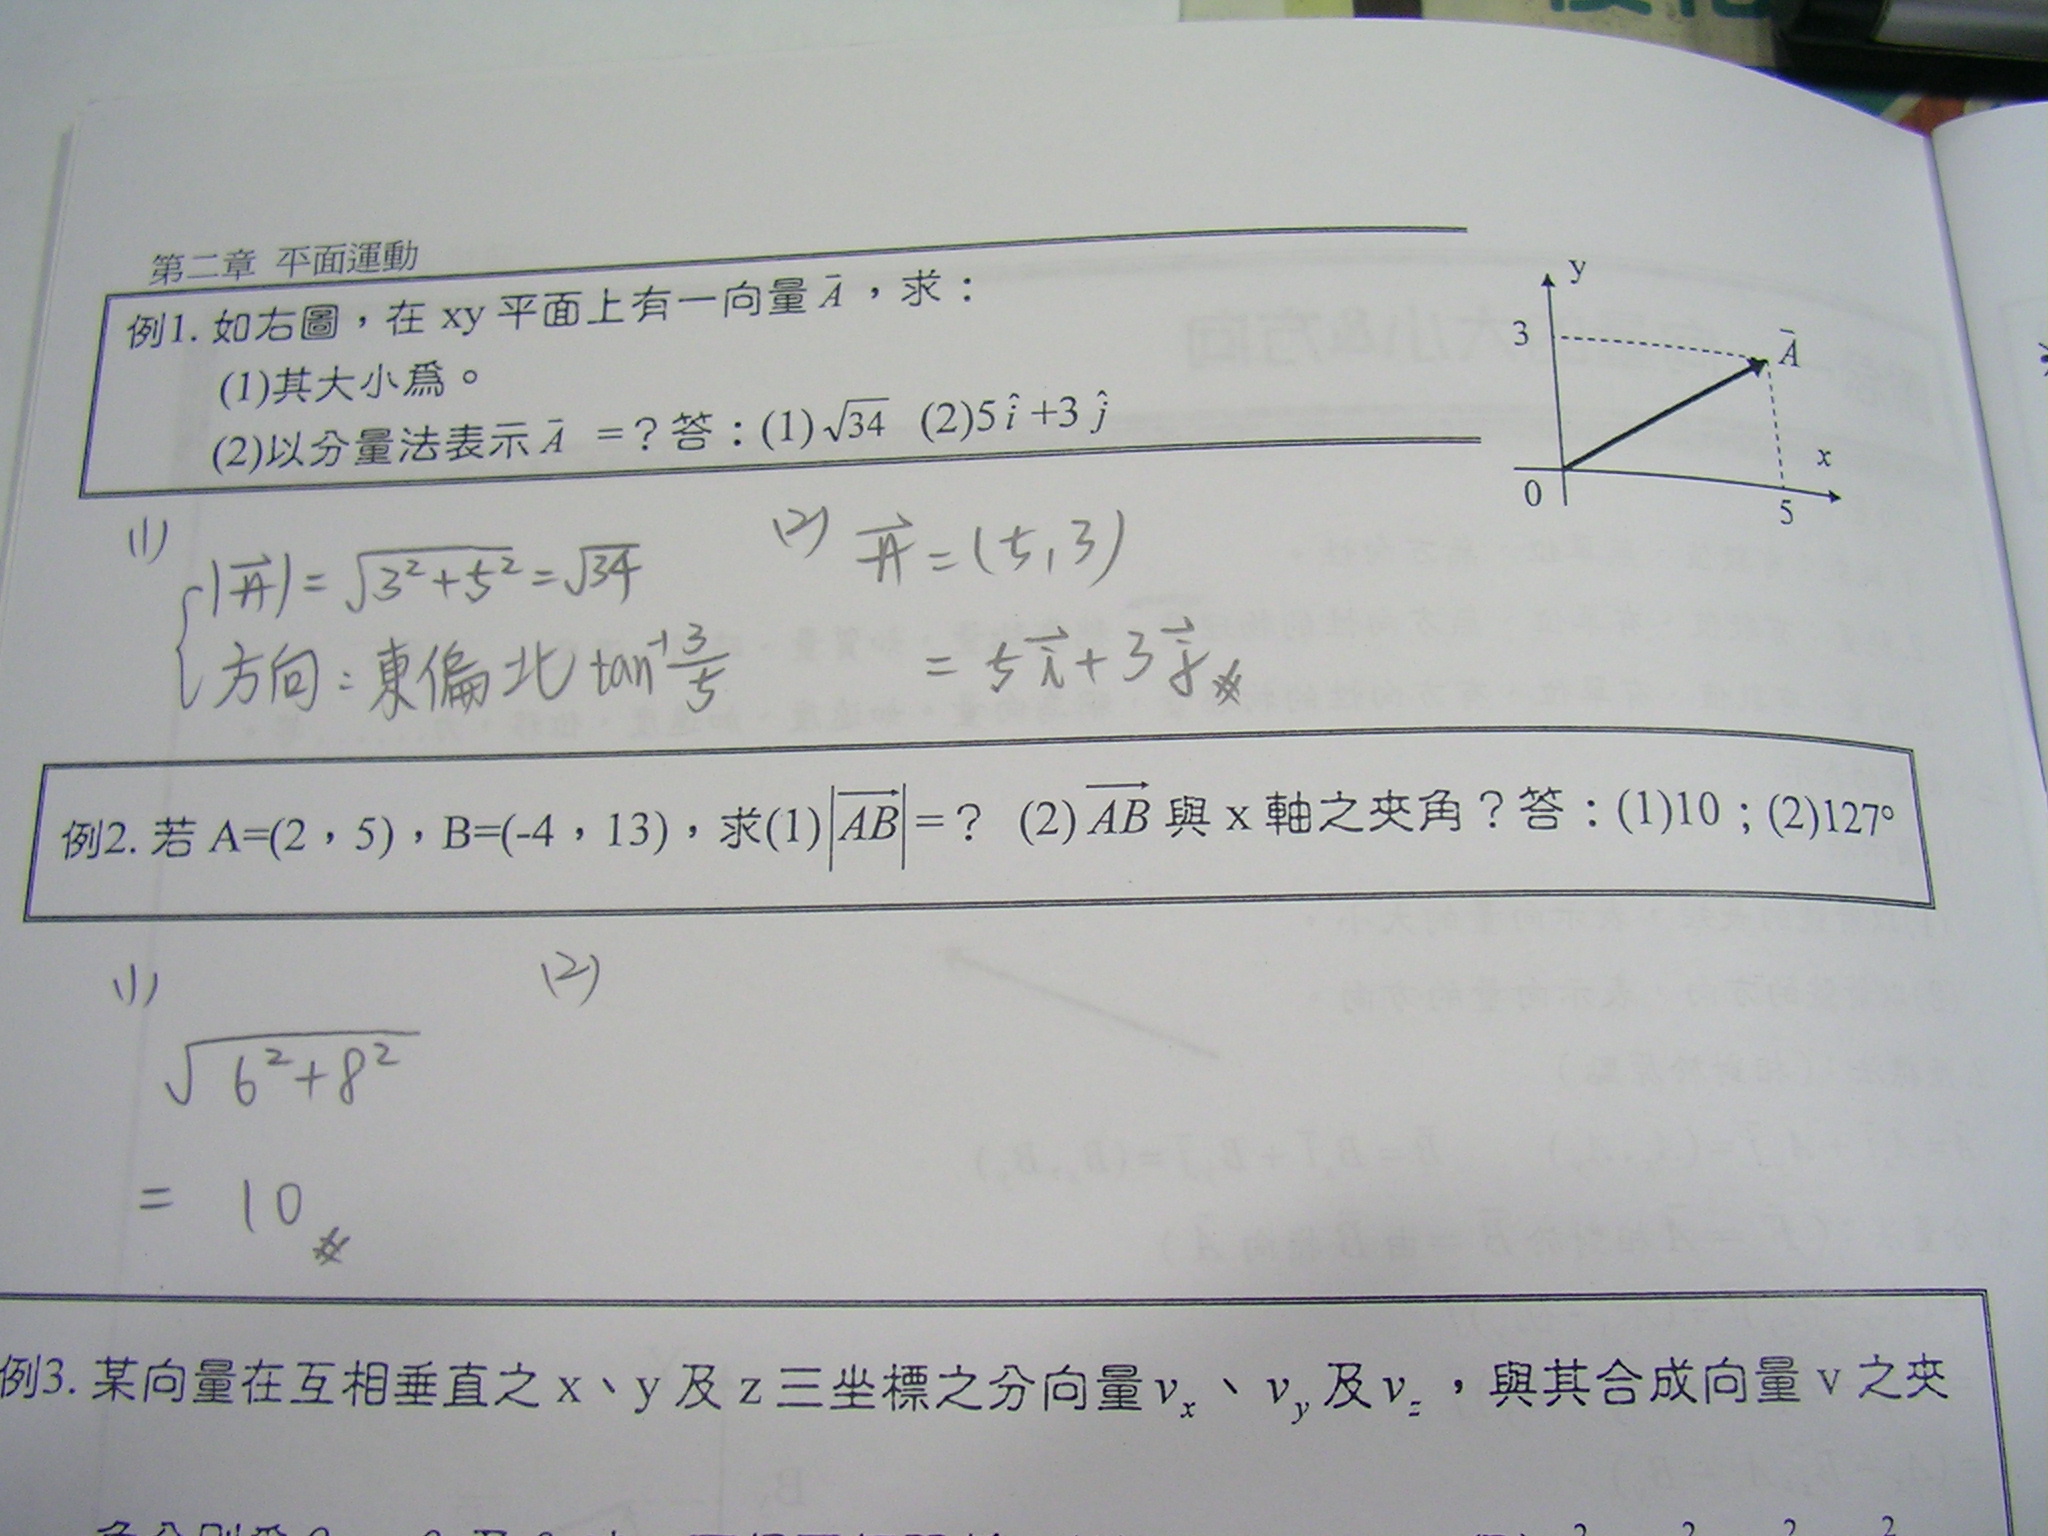 第二章 平面運動
例1. 如右圖，在 xy 平面上有一向量 A̅，求：
(1)其大小爲。
(2)以分量法表示 A̅ =？答：(1)√34 (2)5 î +3 ĵ
y
3
A̅
x
0
5
(1)
|A⃗| = √(3²+5²) = √34
方向：東偏北 tan⁻¹ 3/5
(2) A⃗ = (5,3)
= 5i⃗ + 3j⃗
例2. 若 A=(2，5)，B=(-4，13)，求(1)|AB⃗|=？ (2) AB⃗ 與 x 軸之夾角？答：(1)10；(2)127°
(1)
√(6²+8²)
= 10
(2)
例3. 某向量在互相垂直之 x、y 及 z 三坐標之分向量 vx、vy 及 vz，與其合成向量 v 之夾